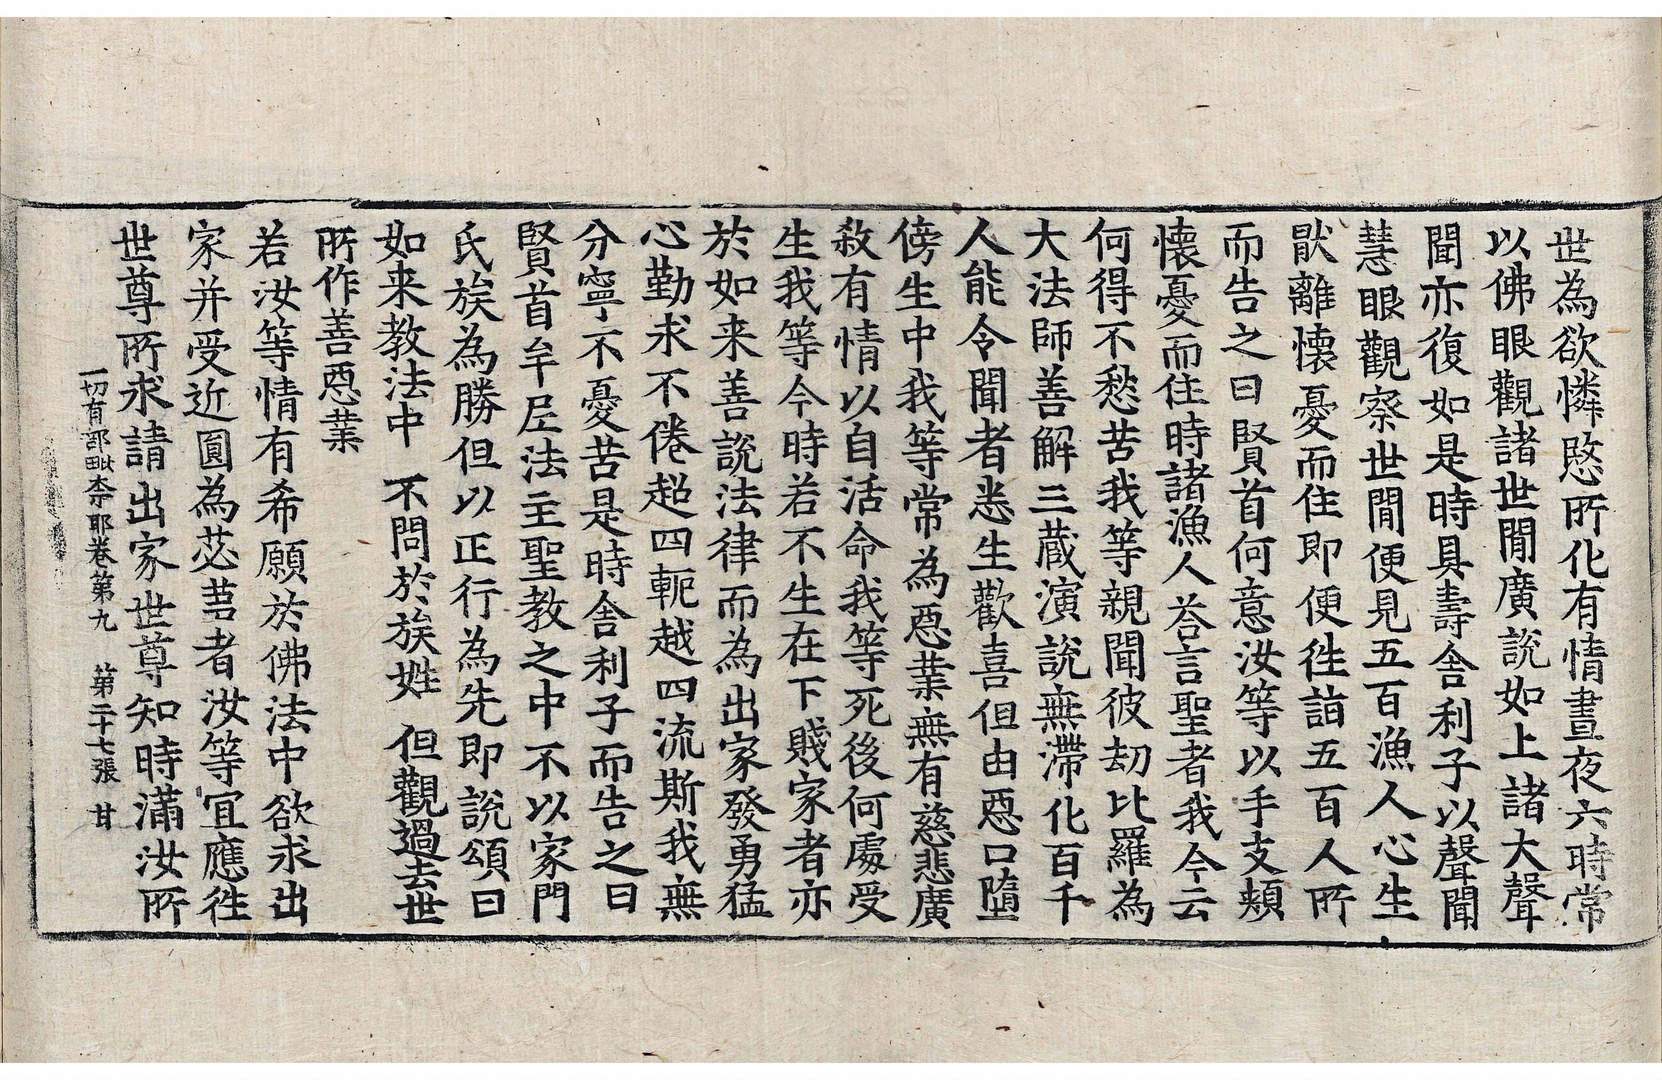 世為欲憐愍所化有情晝夜六時常
以佛眼觀諸世間廣說如上諸大聲
聞亦復如是時具壽舍利子以聲聞
慧眼觀察世間便見五百漁人心生
猒離懷憂而住即便往詣五百人所
而告之曰賢首何意汝等以手支頰
懷憂而住時諸漁人荅言聖者我今云
何得不愁苦我等親聞彼劫比羅為
大法師善解三藏演說無滯化百千
人能令聞者悉生歡喜但由惡口墮
傍生中我等常為惡業無有慈悲廣
殺有情以自活命我等死後何處受
生我等今時若不生在下賤家者亦
於如来善說法律而為出家發勇猛
心勤求不倦超四軛越四流斯我無
分寧不憂苦是時舍利子而告之曰
賢首牟尼法主聖教之中不以家門
氏族為勝但以正行為先即說頌曰
如来教法中 不問於族姓 但觀過去世
所作善惡業
若汝等情有希願於佛法中欲求出
家并受近圓為苾芻者汝等宜應往
世尊所求請出家世尊知時滿汝所
一切有部毗奈耶卷第九 第二十七張 甘